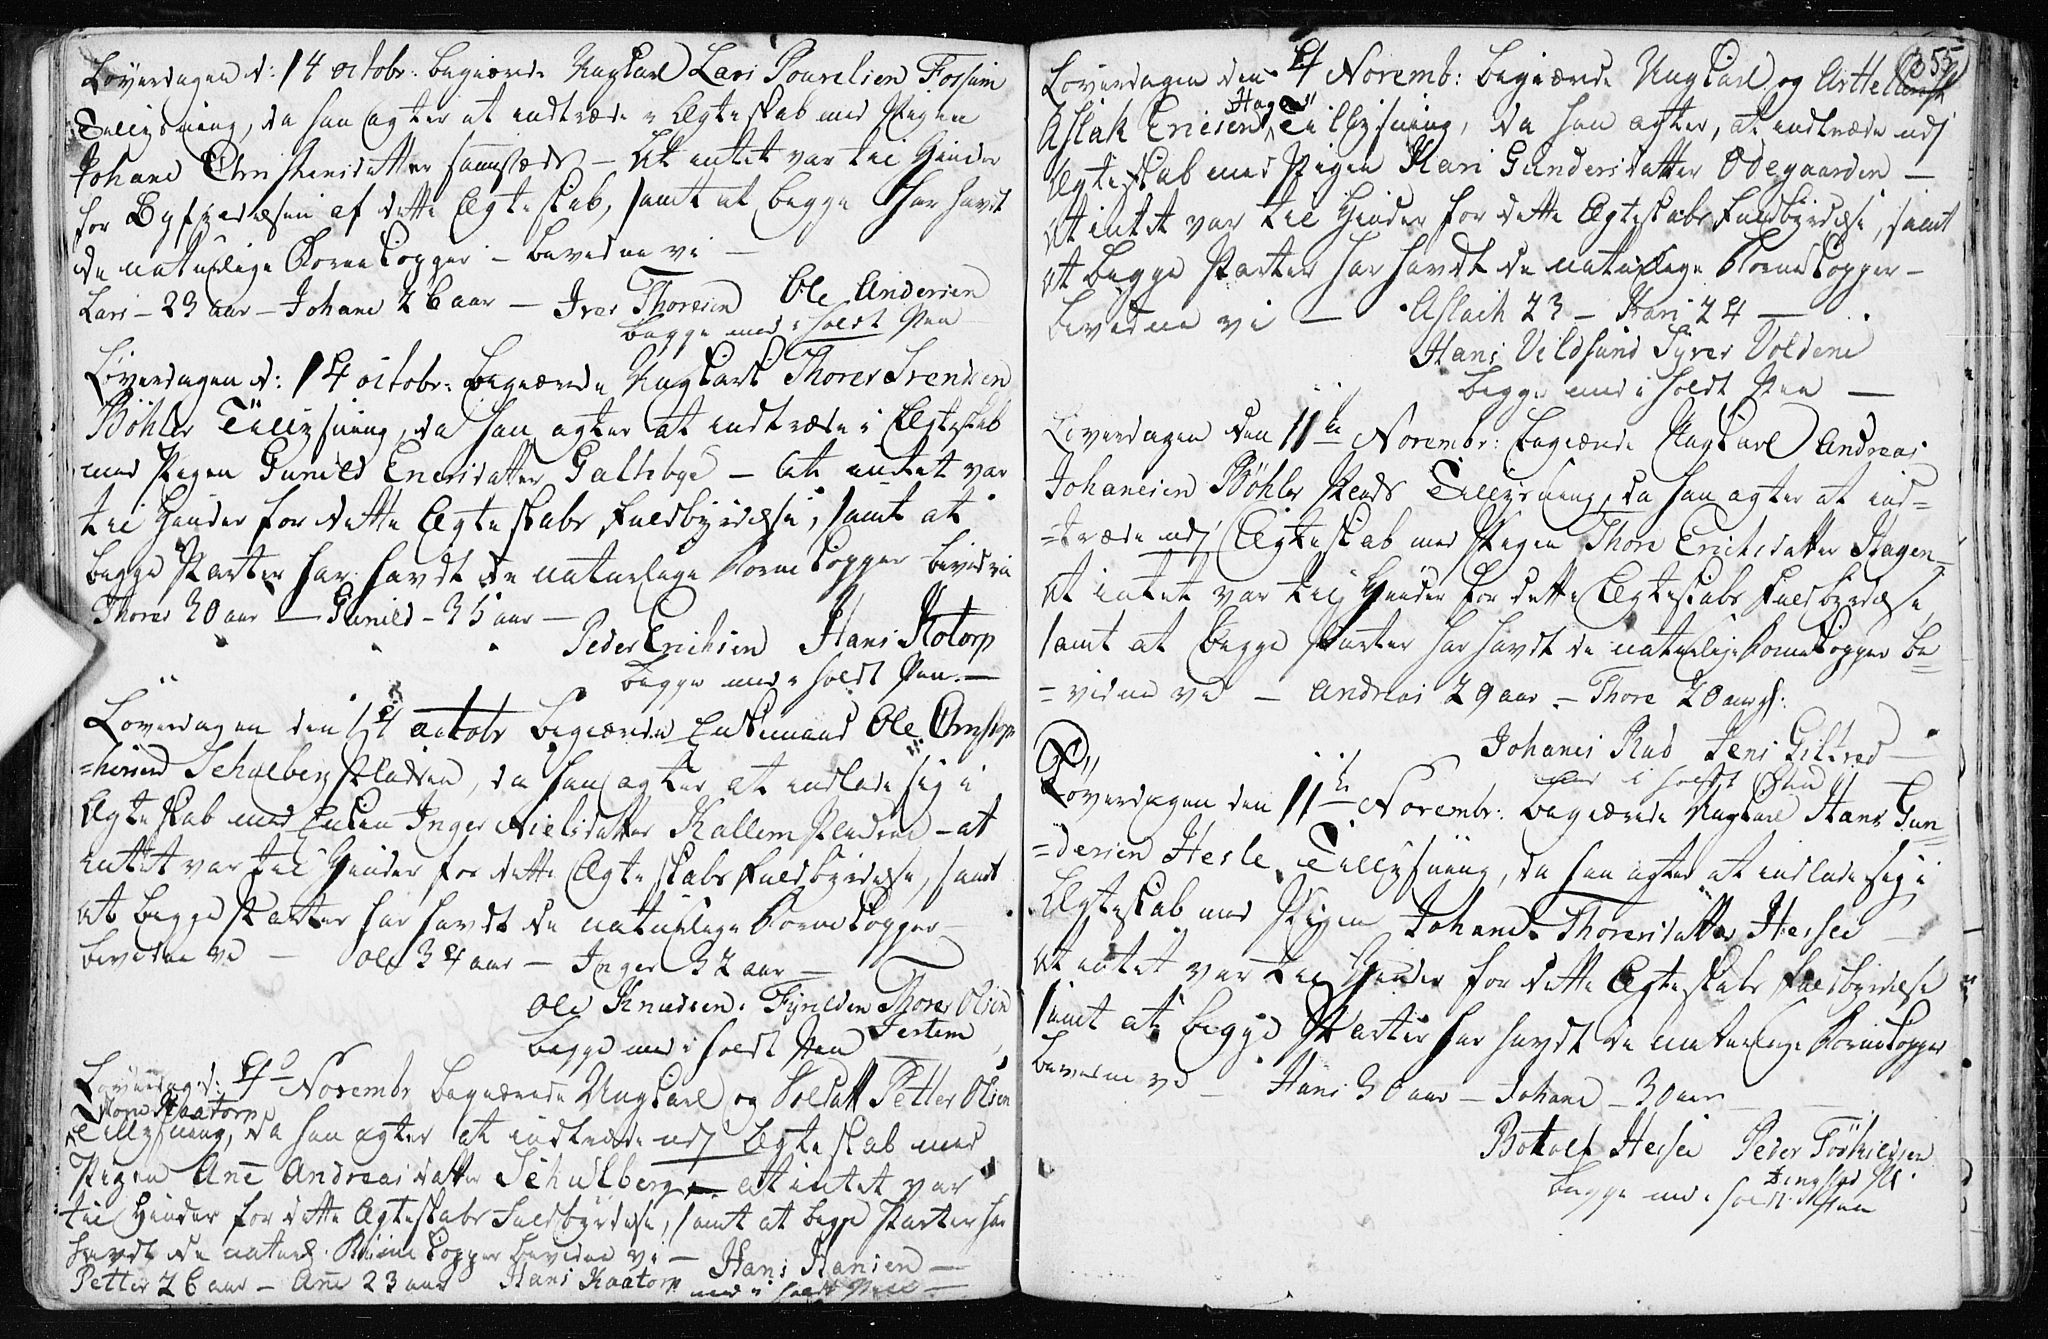 Löverdagen d: 14 octobr: begiærede Ungkarl Lars Povelsen Fossum
Tillysning, da han agter at indtræde i Ægteskab med Pigen
Johane Christensdatter sammesteds – At intet var til Hinder
for Byfyrdelsen af dette Ægteskab, samt at begge har havt
de naturlige Koerkopper – bevidne vi –
Lars – 23 aar – Johane 26 aar – Iver Thoresen Ole Andersen
begge med i holdt Pen
Löverdagen d: 14 octobr: begiærede Ungkarl Thorer Svendsen
Böhler Tillysning, da han agter at indtræde i Ægteskab
med Pigen Gunild Enersdatter Galtebye – At intet var
til Hinder for dette Ægteskabs Fuldbyrdelse, samt at
begge Parter har havdt de naturlige Koernkopper bevidne
Thorer 30 aar – Gunild – 35 aar –
Peder Erichsen Hans Kotorp
begge med i holdt Pen. –
Löverdagen den 14 octobr begiærede Enkemand Ole Christop
=hersen Schulberg Pladsen, da han agter at indlade sig i
Ægteskab med Enken Inger Nielsdatter Kallem Pladsen – at
intet var til Hinder for dette Ægteskabs Fuldbyrdelse, samt
at begge Parter har havdt de naturlige Koernekopper –
bevidne vi – Ole 34 aar – Inger 32 aar –
Ole Knudsen Thorer Olsen
begge med i holdt Pen Jertem
Löverdag d: 4de Novembr begiærede Ungkarl og Soldatt Petter Olsen
Kaatorp
Tillysning, da han agter at indtræde udj Ægteskab med
Pigen Ane Andreasdatter Schulberg – at intet var
til Hinder for dette Ægteskabs Fuldbyrdelse, samt at begge Parter har
havdt de naturl. Koernekopper bevidne vi – Hans Hansen –
Petter 26 aar – Ane 23 aar Hans Kaatorp med i holdt Pen –
355
Löverdagen den 4 Novemb: begiærede Ungkarl og
Hagen
Aslak Ericsen Tillysning, da han agter, at indtræde udj
Ægteskab med Pigen Kari Gundersdatter Ödegaarden –
At intet var til Hinder for dette Ægteskabs Fuldbyrdelse, samt
at begge Parter har havdt de naturlige Koernekopper –
bevidne vi – Aslach 23 – Kari 24 –
Hans Vildsund Syver Voldene
begge med i holdt Pen –
Löverdagen den 11te Novembr: begiærede Ungkarl Andreas
Johanesen Böhler Pladsen Tillysning, da han agter at ind=
=træde udj Ægteskab med Pigen Thore Erichsdatter Hagen –
At intet var til Hinder for dette Ægteskabs Fuldbyrdelse,
samt at begge Parter har havdt de naturlige Koernekopper be=
=vidne vi – Andreas 29 aar – Thore 20 aar gl:
Johanes Rud Jens Giltved –
med i holdt Pen
Löverdagen den 11te Novembr: begiærede Ungkarl Hans Gun=
=dersen Hesle Tillysning, da han agter at indlade sig i
Ægteskab med Pigen Johane Thoresdatter Heslee –
At intet var til Hinder for dette Ægteskabs Fuldbyrdelse
samt at begge Parter har havdt de naturlige Koernekopper
bevidne vi – Hans 30 aar – Johane – 30 aar
Botolf Heslee Peder
begge med i holdt Pen